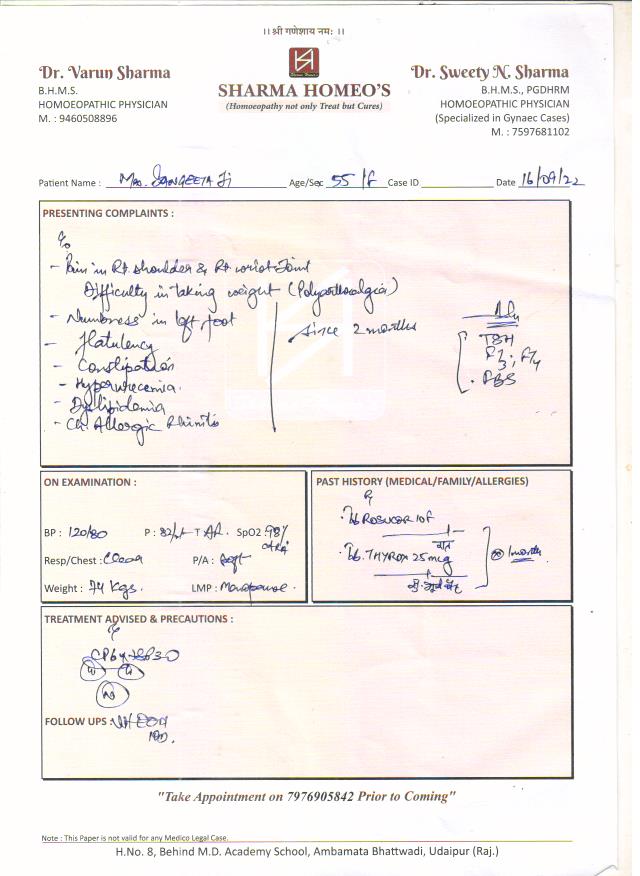 ।। श्री गणेशाय नमः ।।
Dr. Varun Sharma
B.H.M.S.
HOMOEOPATHIC PHYSICIAN
M. : 9460508896
SHARMA HOMEO'S
(Homoeopathy not only Treat but Cures)
Dr. Sweety N. Sharma
B.H.M.S., PGDHRM
HOMOEOPATHIC PHYSICIAN
(Specialized in Gynaec Cases)
M. : 7597681102
Patient Name : Mrs. SANGEETA Ji Age/Sex 55/f Case ID Date 16/09/22
PRESENTING COMPLAINTS :
c/o
- Pain in Rt. shoulder & Rt. wrist Joint
Difficulty in taking weight (Polyarthralgia)
- Numbness in left foot
- Flatulency
- Constipation
- Hyperuricemia.
- Dyslipidemia
- Ch. Allergic Rhinitis
since 2 months
Adv
TSH
F/T3; F/T4
. RBS
ON EXAMINATION :
BP : 120/80 P : 82/ T Af. SpO2 : 98%
Resp/Chest : Clear P/A : Soft
Weight : 74 Kgs. LMP : Menopause.
PAST HISTORY (MEDICAL/FAMILY/ALLERGIES)
Rx
. Tab ROSUCOR 10f
रात
. Tab. THYROX 25 mcg
1 month
TREATMENT ADVISED & PRECAUTIONS :
Rx
FOLLOW UPS :
"Take Appointment on 7976905842 Prior to Coming"
Note : This Paper is not valid for any Medico Legal Case.
H.No. 8, Behind M.D. Academy School, Ambamata Bhattwadi, Udaipur (Raj.)